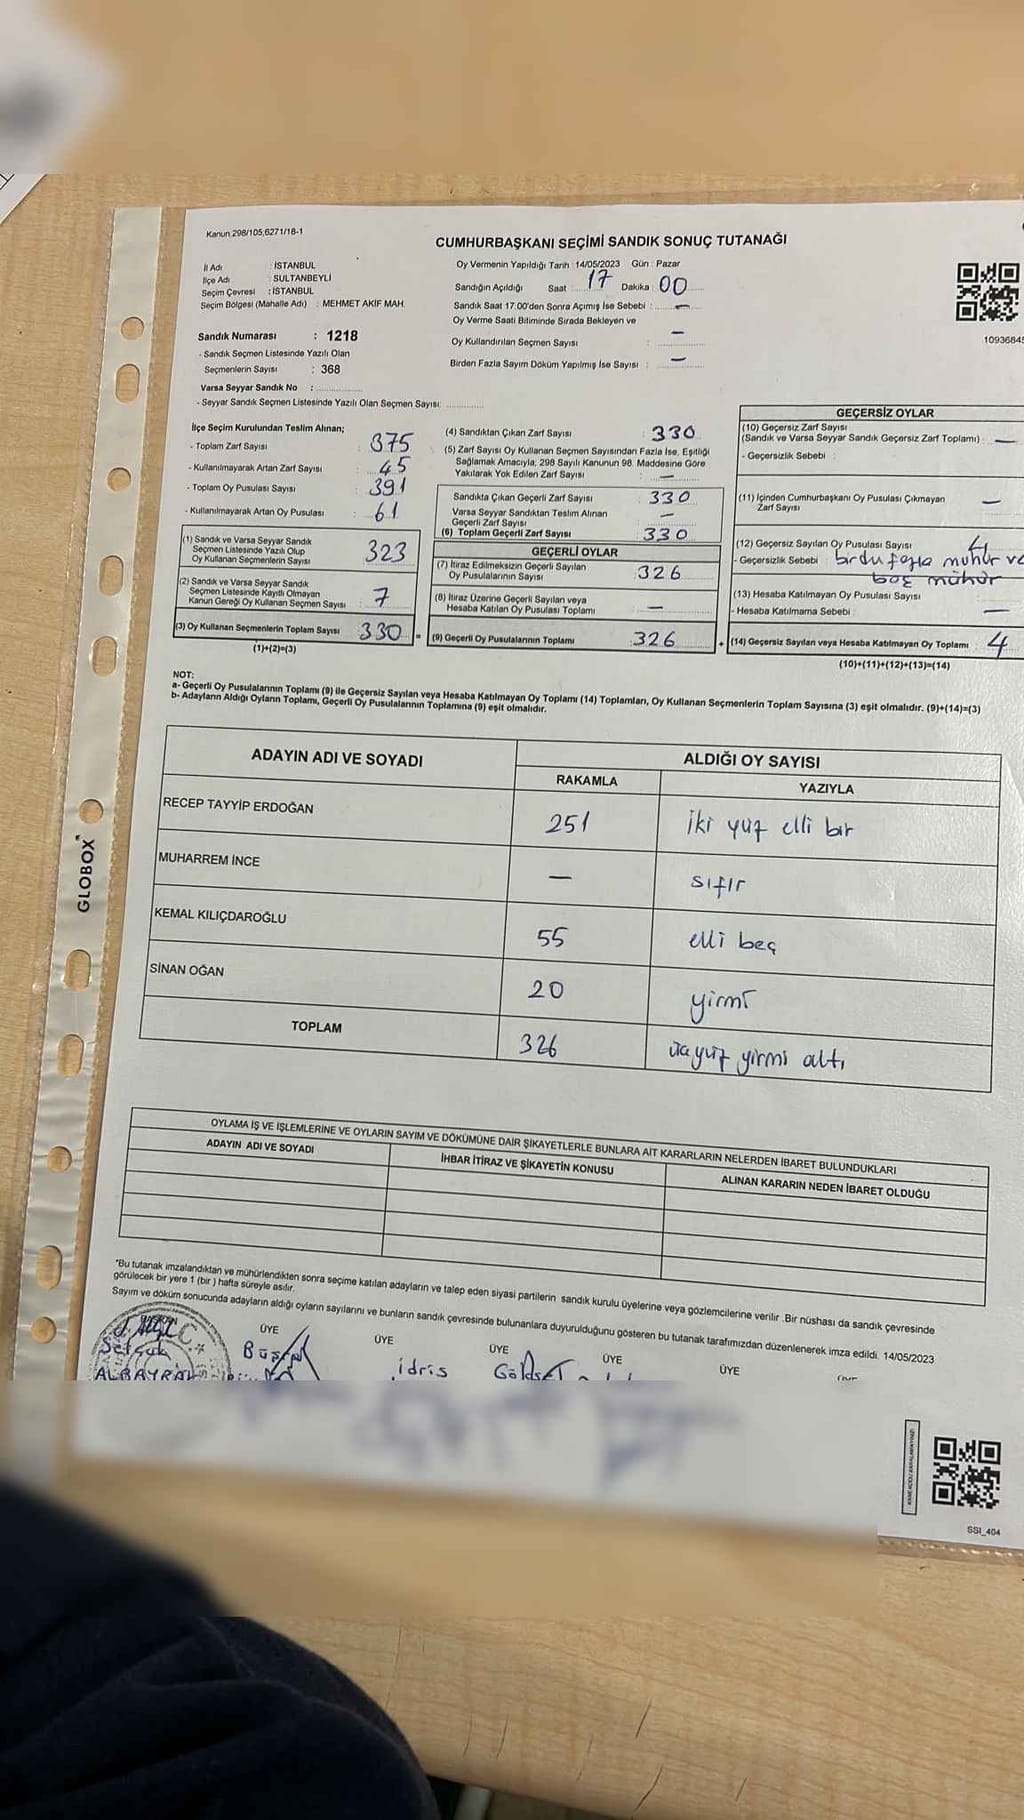 Kanun 298/105,6271/18-1
CUMHURBAŞKANI SEÇİMİ SANDIK SONUÇ TUTANAĞI
İl Adı : İSTANBUL
İlçe Adı : SULTANBEYLİ
Seçim Çevresi : İSTANBUL
Seçim Bölgesi (Mahalle Adı) : MEHMET AKİF MAH.
Oy Vermenin Yapıldığı Tarih : 14/05/2023 Gün : Pazar
Sandığın Açıldığı Saat : 17 Dakika : 00
Sandık Saat 17:00'den Sonra Açımış İse Sebebi : —
Oy Verme Saati Bitiminde Sırada Bekleyen ve
Oy Kullandırılan Seçmen Sayısı : —
Birden Fazla Sayım Döküm Yapılmış İse Sayısı : —
1093684
Sandık Numarası : 1218
- Sandık Seçmen Listesinde Yazılı Olan
Seçmenlerin Sayısı : 368
Varsa Seyyar Sandık No :
- Seyyar Sandık Seçmen Listesinde Yazılı Olan Seçmen Sayısı:
İlçe Seçim Kurulundan Teslim Alınan;
- Toplam Zarf Sayısı : 375
- Kullanılmayarak Artan Zarf Sayısı : 45
- Toplam Oy Pusulası Sayısı : 391
- Kullanılmayarak Artan Oy Pusulası : 61
(1) Sandık ve Varsa Seyyar Sandık
Seçmen Listesinde Yazılı Olup
Oy Kullanan Seçmenlerin Sayısı 323
(2) Sandık ve Varsa Seyyar Sandık
Seçmen Listesinde Kayıtlı Olmayan
Kanun Gereği Oy Kullanan Seçmen Sayısı 7
(3) Oy Kullanan Seçmenlerin Toplam Sayısı 330 =
(1)+(2)=(3)
(4) Sandıktan Çıkan Zarf Sayısı : 330
(5) Zarf Sayısı Oy Kullanan Seçmen Sayısından Fazla İse, Eşitliği
Sağlamak Amacıyla; 298 Sayılı Kanunun 98. Maddesine Göre
Yakılarak Yok Edilen Zarf Sayısı : —
Sandıkta Çıkan Geçerli Zarf Sayısı : 330
Varsa Seyyar Sandıktan Teslim Alınan
Geçerli Zarf Sayısı : —
(6) Toplam Geçerli Zarf Sayısı : 330
GEÇERLİ OYLAR
(7) İtiraz Edilmeksizin Geçerli Sayılan
Oy Pusulalarının Sayısı : 326
(8) İtiraz Üzerine Geçerli Sayılan veya
Hesaba Katılan Oy Pusulası Toplamı : —
(9) Geçerli Oy Pusulalarının Toplamı : 326 +
GEÇERSİZ OYLAR
(10) Geçersiz Zarf Sayısı
(Sandık ve Varsa Seyyar Sandık Geçersiz Zarf Toplamı) : —
- Geçersizlik Sebebi :
(11) İçinden Cumhurbaşkanı Oy Pusulası Çıkmayan
Zarf Sayısı —
(12) Geçersiz Sayılan Oy Pusulası Sayısı : 4
- Geçersizlik Sebebi fazla mühür ve
boş mühür
(13) Hesaba Katılmayan Oy Pusulası Sayısı :
- Hesaba Katılmama Sebebi : —
(14) Geçersiz Sayılan veya Hesaba Katılmayan Oy Toplamı : 4
(10)+(11)+(12)+(13)=(14)
NOT:
a- Geçerli Oy Pusulalarının Toplamı (9) ile Geçersiz Sayılan veya Hesaba Katılmayan Oy Toplamı (14) Toplamları, Oy Kullanan Seçmenlerin Toplam Sayısına (3) eşit olmalıdır. (9)+(14)=(3)
b- Adayların Aldığı Oyların Toplamı, Geçerli Oy Pusulalarının Toplamına (9) eşit olmalıdır.
ADAYIN ADI VE SOYADI
ALDIĞI OY SAYISI
RAKAMLA YAZIYLA
RECEP TAYYİP ERDOĞAN 251 iki yüz elli bir
MUHARREM İNCE — sıfır
KEMAL KILIÇDAROĞLU 55 elli beş
SİNAN OĞAN 20 yirmi
TOPLAM 326 üçyüz yirmi altı
GLOBOX
OYLAMA İŞ VE İŞLEMLERİNE VE OYLARIN SAYIM VE DÖKÜMÜNE DAİR ŞİKAYETLERLE BUNLARA AİT KARARLARIN NELERDEN İBARET BULUNDUKLARI
ADAYIN ADI VE SOYADI İHBAR İTİRAZ VE ŞİKAYETİN KONUSU ALINAN KARARIN NEDEN İBARET OLDUĞU
"Bu tutanak imzalandıktan ve mühürlendikten sonra seçime katılan adayların ve talep eden siyasi partilerin sandık kurulu üyelerine veya gözlemcilerine verilir .Bir nüshası da sandık çevresinde
görülecek bir yere 1 (bir ) hafta süreyle asılır.
Sayım ve döküm sonucunda adayların aldığı oyların sayılarını ve bunların sandık çevresinde bulunanlara duyurulduğunu gösteren bu tutanak tarafımızdan düzenlenerek imza edildi. 14/05/2023
BAŞKAN ÜYE ÜYE ÜYE ÜYE ÜYE
Selçuk
ALBAYRAK
idris
SSI_404